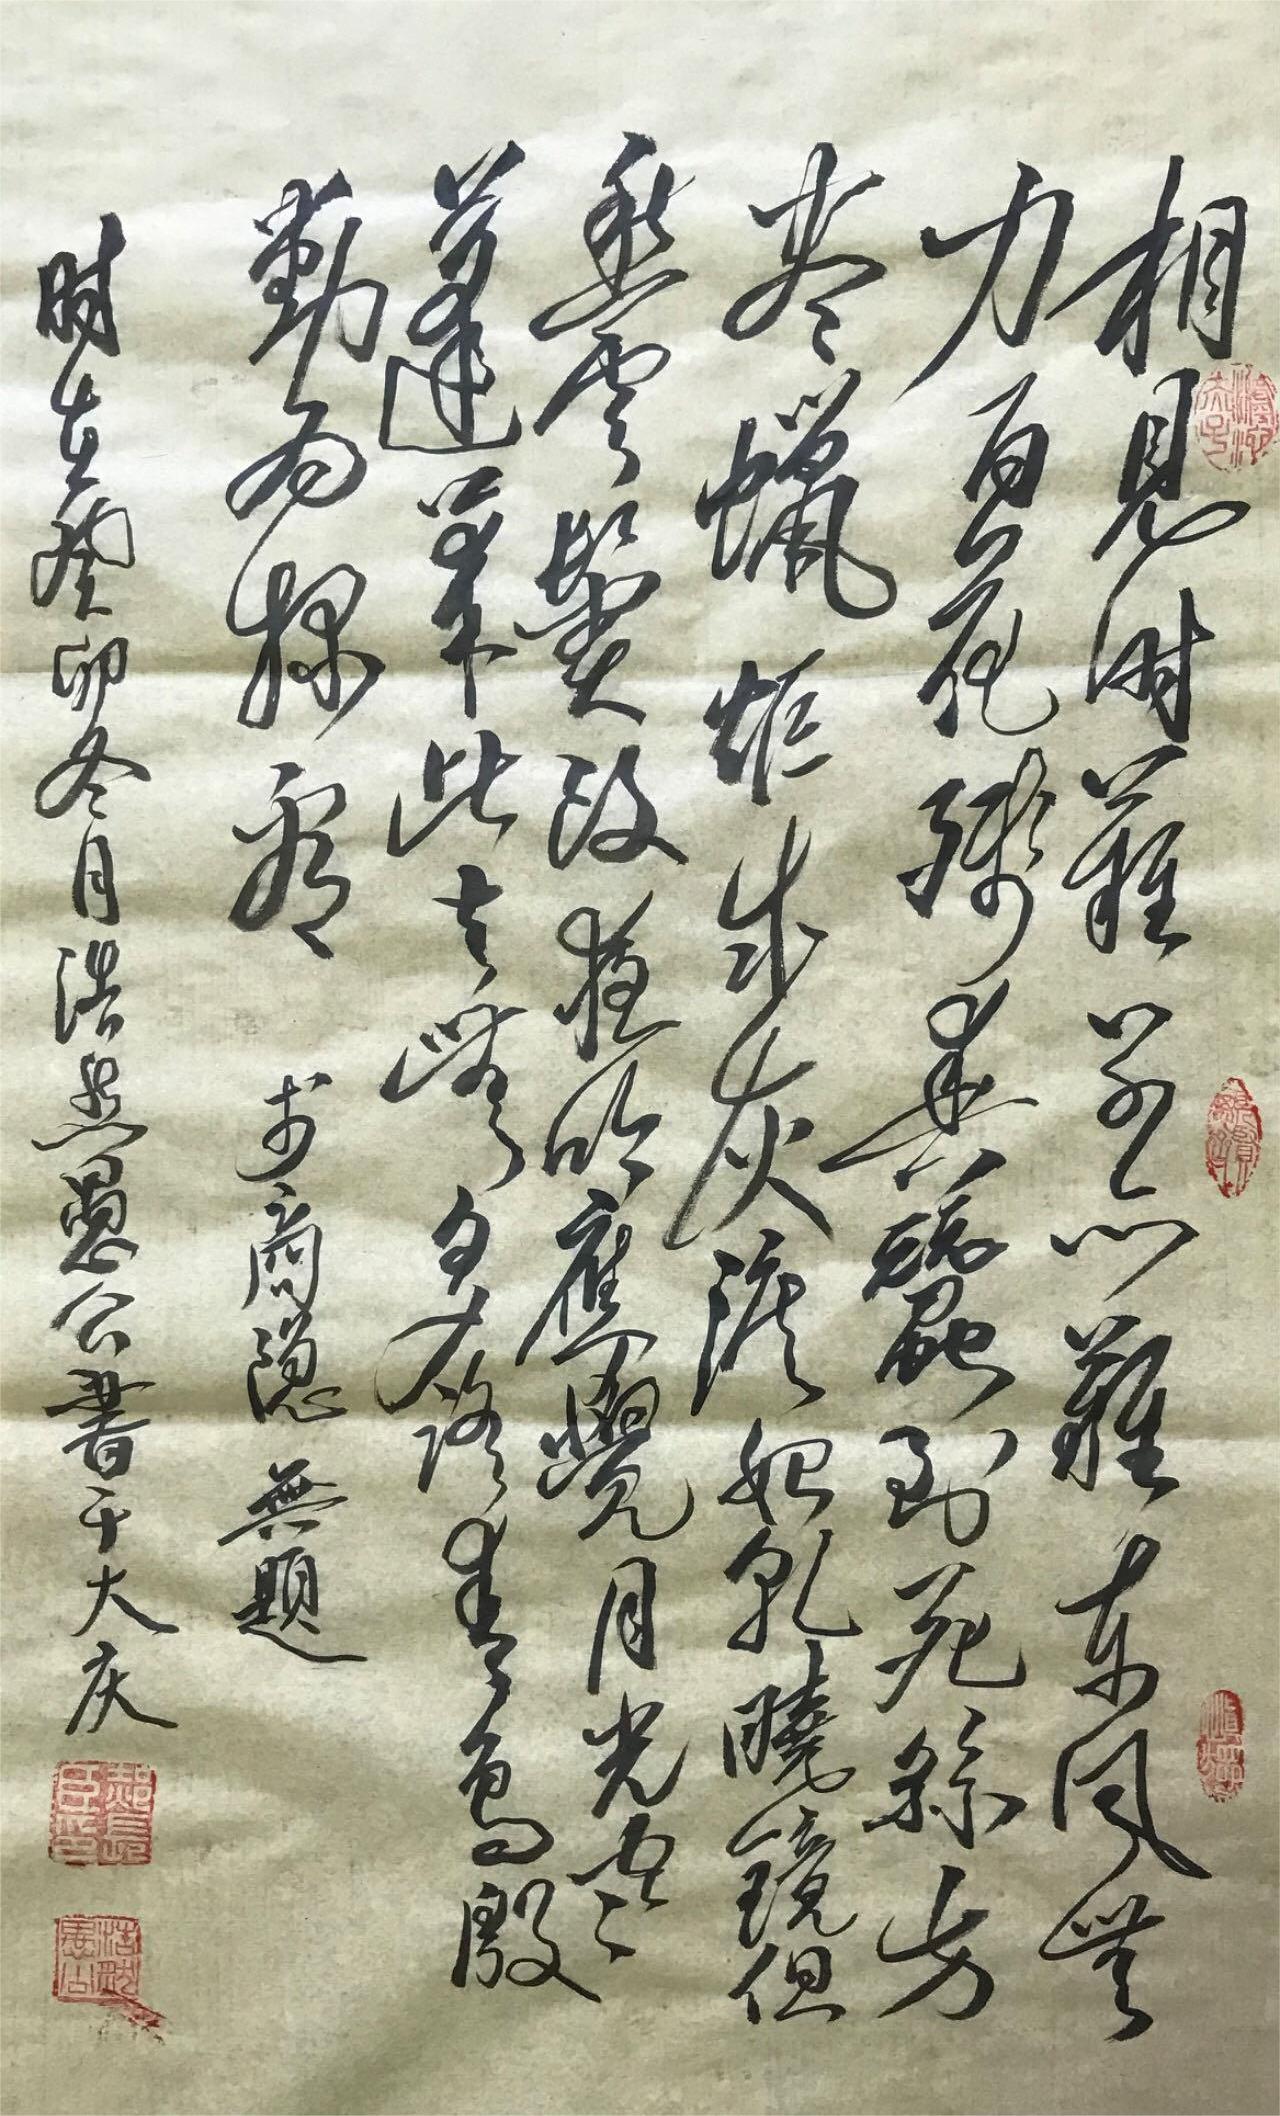 相見时難别心難東风無
力百花殘春蠶到死絲方
尽蠟炬成灰淚始乾曉鏡但
愁雲鬢改夜吟應覺月光寒
蓬莱此去無多路青鳥殷
勤为探看 李商隐 無題
时在癸卯冬月浩然愚公書于大庆